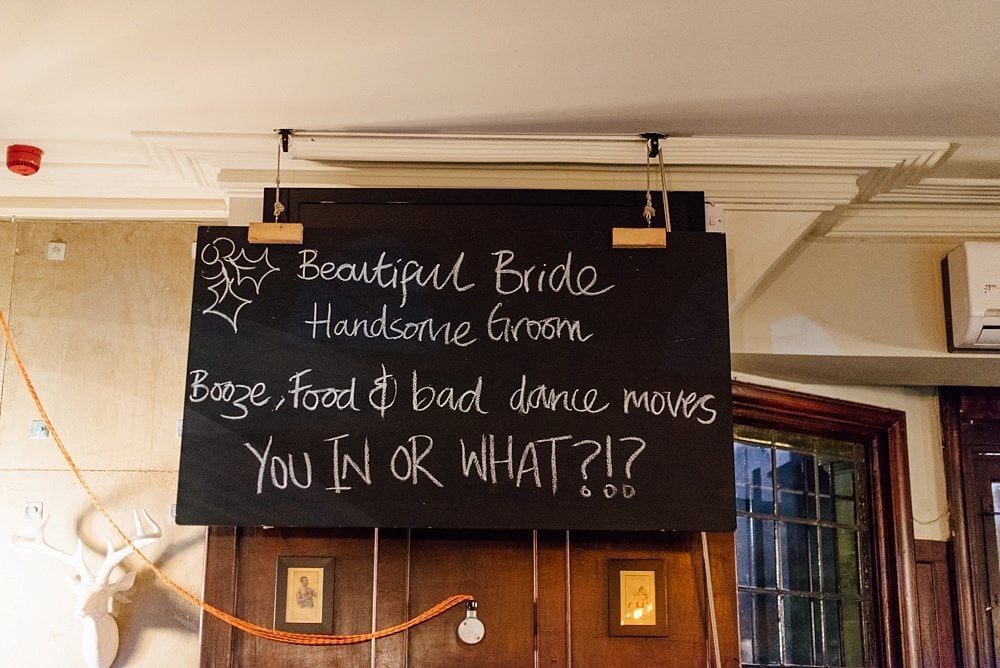 Beautiful Bride
Handsome Groom
Booze, Food & bad dance moves
YOU IN OR WHAT?!?